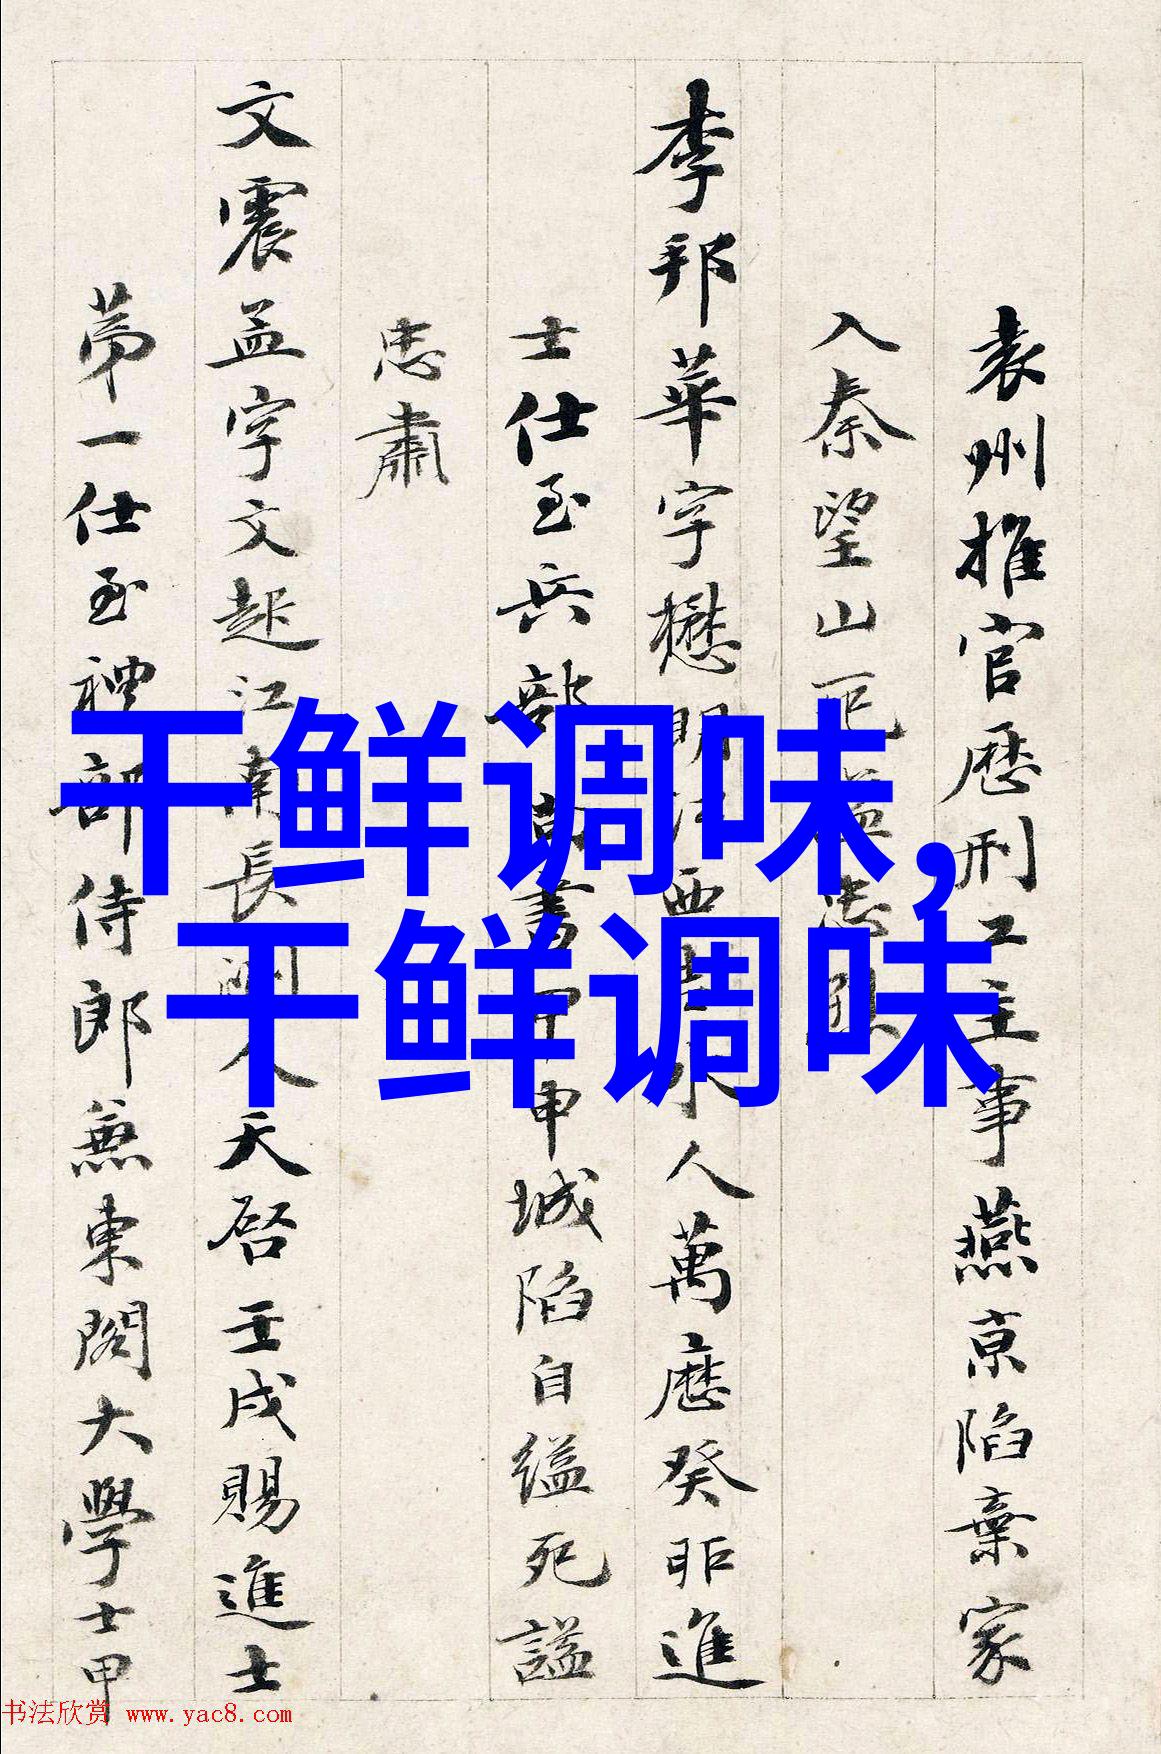 袁州推官歷刑工主事燕京陷棄家
入秦望山
李邦華字懋明江西吉水人萬曆癸卯進
士仕至兵部尚書甲申城陷自縊死謚
忠肅
文震孟字文起江南長洲人天啓壬戌賜進士
第一仕至禮部侍郎兼東閣大學士甲
干鲜调味,
干鲜调味
书法欣赏 www.yac8.com